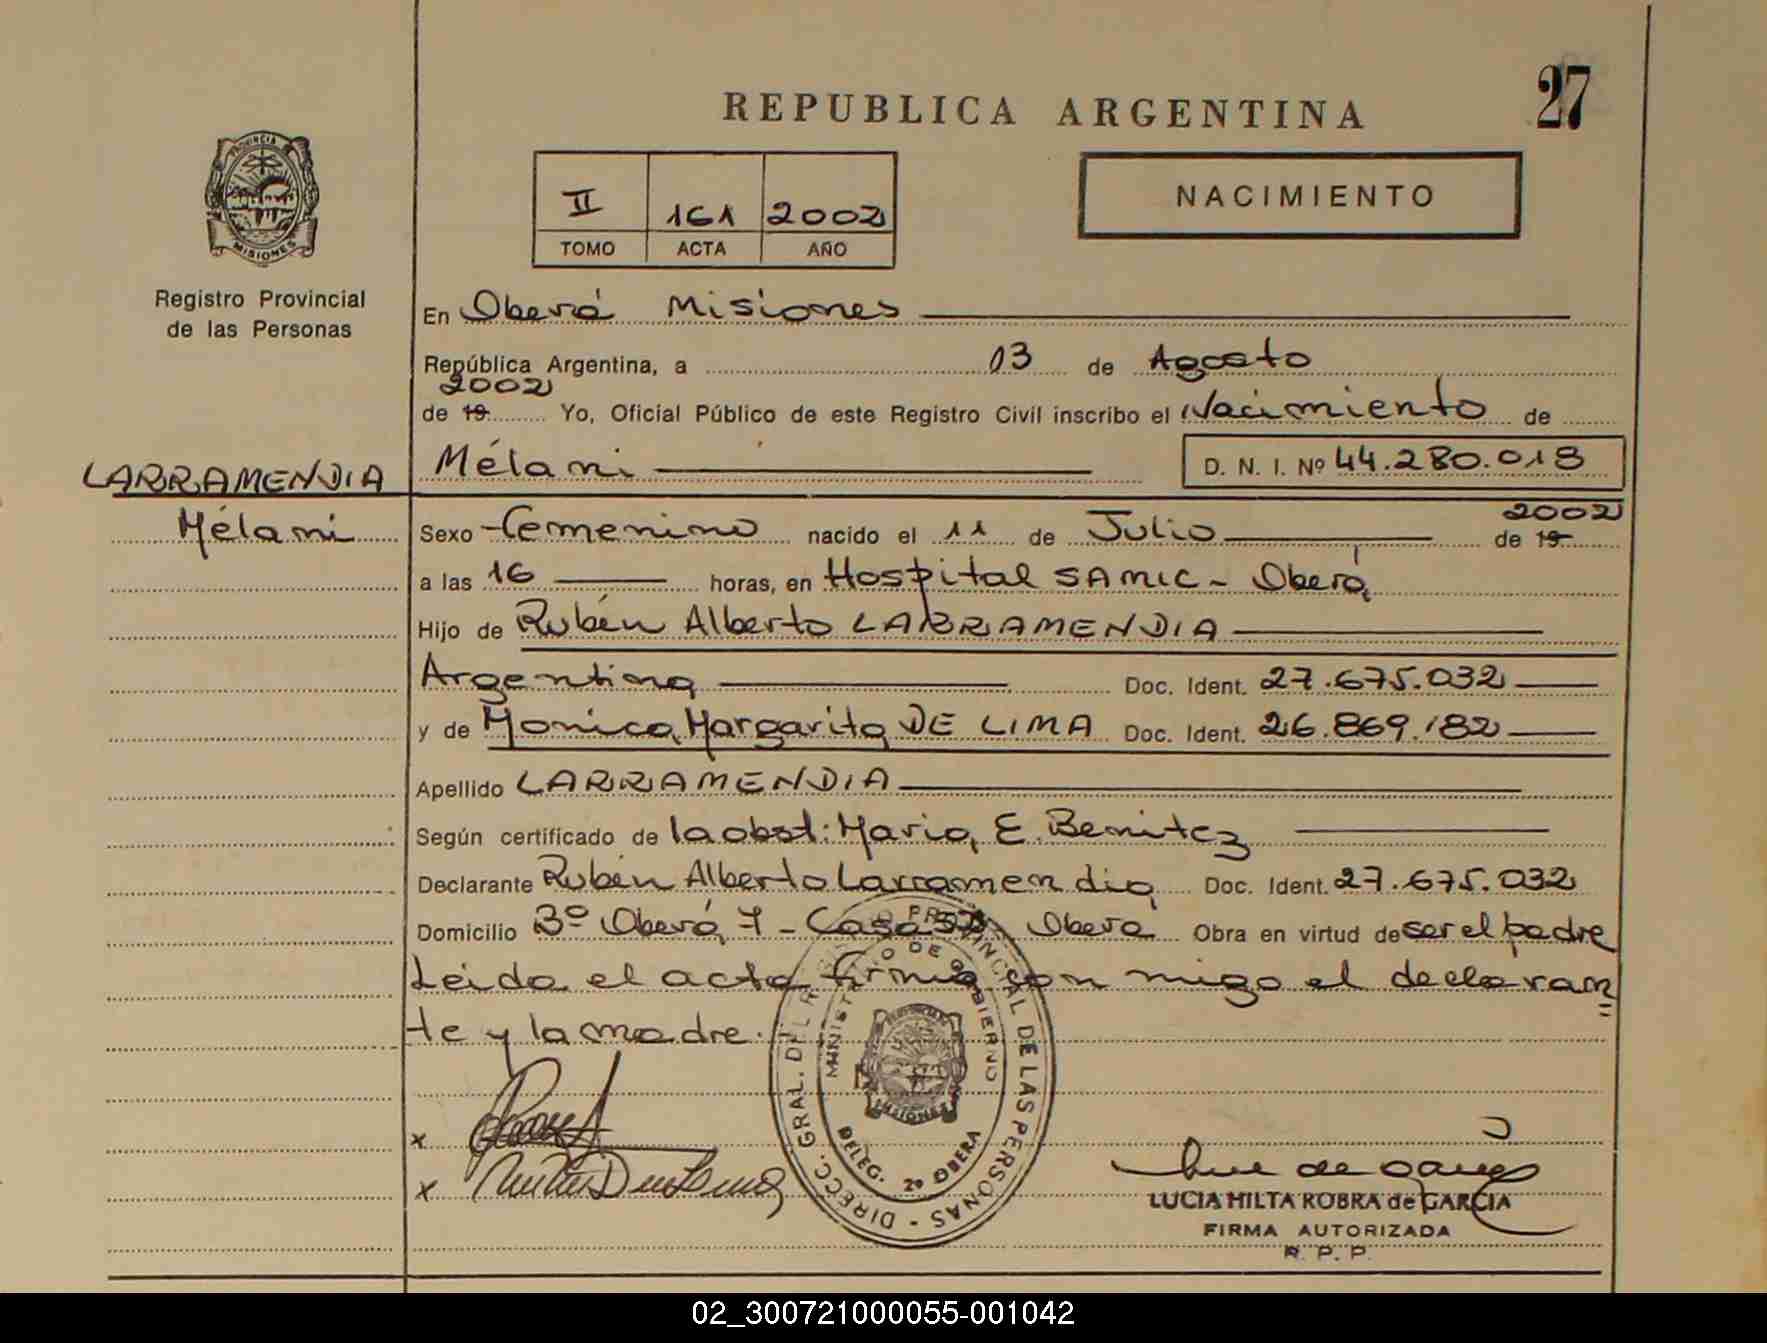 27
REPUBLICA ARGENTINA
PROVINCIA DE
MISIONES
Registro Provincial
de las Personas
II 161 2002
TOMO ACTA AÑO
NACIMIENTO
En Oberá Misiones
República Argentina, a 03 de Agosto
2002
de 19 Yo, Oficial Público de este Registro Civil inscribo el Nacimiento de
Mélani D. N. I. Nº 44.280.018
LARRAMENDIA
Mélani
2002
Sexo Femenino nacido el 11 de Julio de 19
a las 16 horas, en Hospital SAMIC - Oberá
Hijo de Rubén Alberto LARRAMENDIA
Argentina Doc. Ident. 27.675.032
y de Monica Margarita DE LIMA Doc. Ident. 26.869.182
Apellido LARRAMENDIA
Según certificado de la obst: Maria E. Benitez
Declarante Rubén Alberto Larramendia Doc. Ident. 27.675.032
Domicilio Bº Oberá 7 - Casa 52 Oberá Obra en virtud de ser el padre
Leida el acta firma con migo el declaran
te y la madre.
DIRECC. GRAL. DEL REGISTRO PROVINCIAL DE LAS PERSONAS -
MINISTERIO DE GOBIERNO
MISIONES
DELEG. 2º OBERA
x
x
LUCIA HILTA ROBRA de GARCIA
FIRMA AUTORIZADA
R. P. P.
02_300721000055-001042